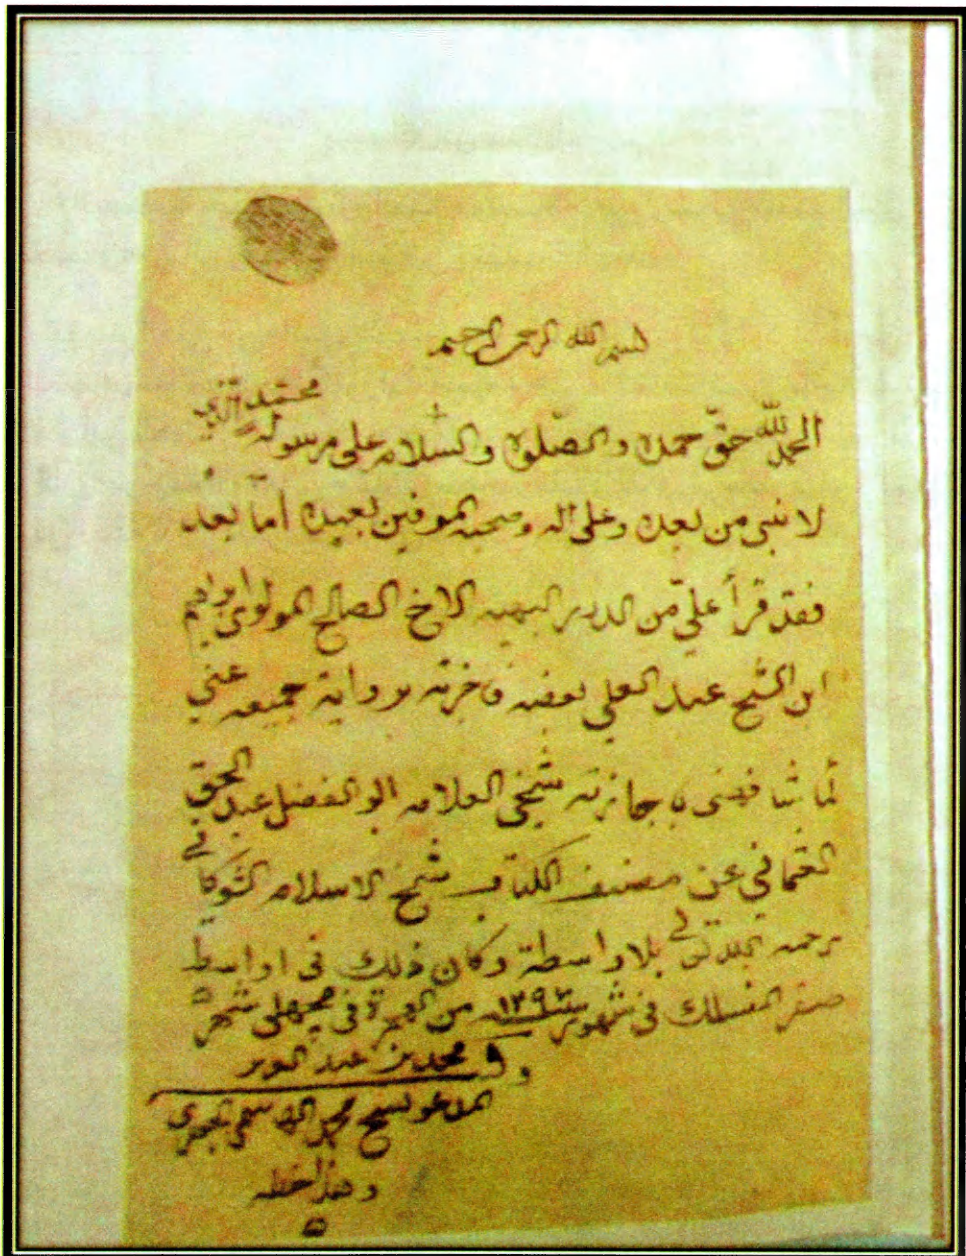 بسم الله الرحمن الرحيم
الحمد لله حق حمده والصلوة والسلام على رسوله محمد الذي
لا نبي من بعده وعلى اله وصحبه الموفين بعهده اما بعد
فقد قرأ علي من الدرر البهيه الاخ الصالح المولوي ابراهيم
ابن الشيخ عبد العلي بعضه فاجزته برواية جميعه عني
كما شافهني باجازته شيخي العلامه ابو الفضل عبد الحق
العثماني عن مصنف الكتاب شيخ الاسلام الشوكاني
رحمه الله تعالى بلا واسطة وكان ذلك في اواسط
صفر المنسلك في شهور سنة ١٢٩٣ من الهجرة في مچهلي شهر
محمد بن عبد العزيز
المدعو بشيخ محمد الهاشمي الجعفري
وهذا خطه